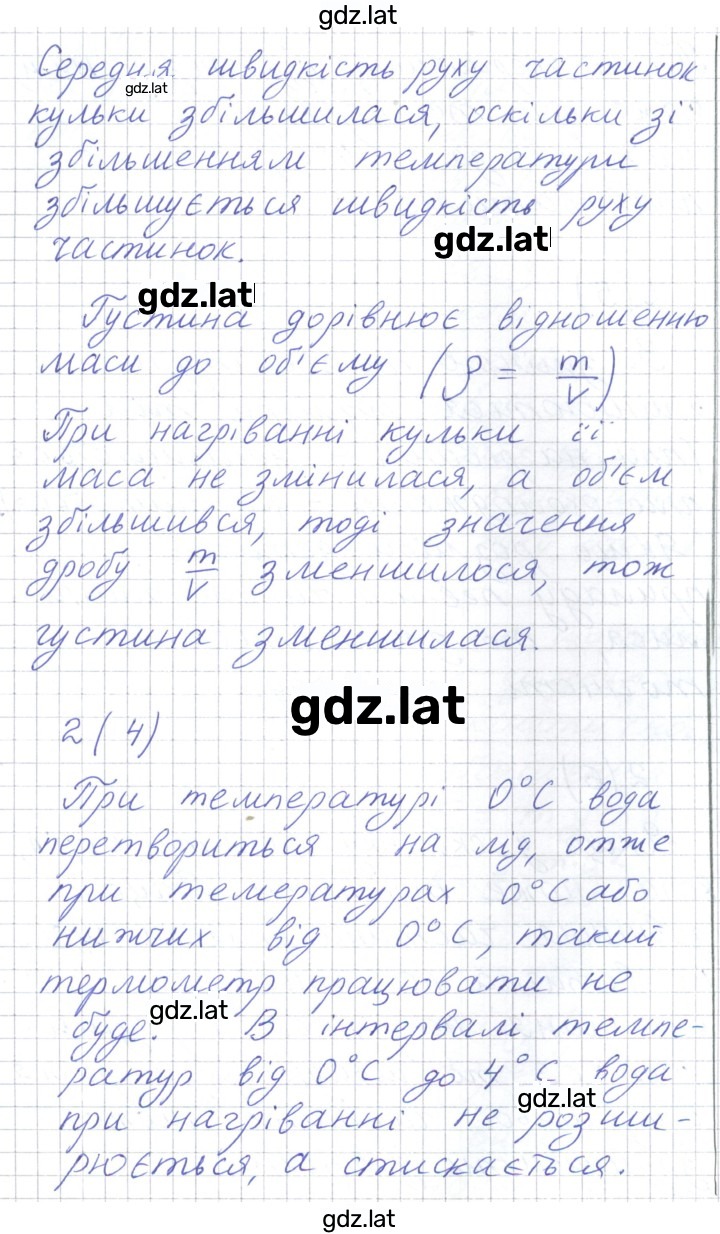 gdz.lat
Середня швидкість руху частинок
gdz.lat
кульки збільшилася, оскільки зі
збільшенням температури
збільшується швидкість руху
частинок.
gdz.lat
gdz.lat
Густина дорівнює відношенню
маси до об'єму (ρ = m/V)
При нагріванні кульки її
маса не змінилася, а об'єм
збільшився, тоді значення
дробу m/V зменшилося, тож
густина зменшилася.
gdz.lat
2 (4)
При температурі 0°C вода
перетвориться на лід, отже
при темературах 0°C або
нижчих від 0°C, такий
термометр працювати не
gdz.lat
буде. В інтервалі темпе-
ратур від 0°C до 4°C вода
gdz.lat
при нагріванні не розши-
рюється, а стискається.
gdz.lat